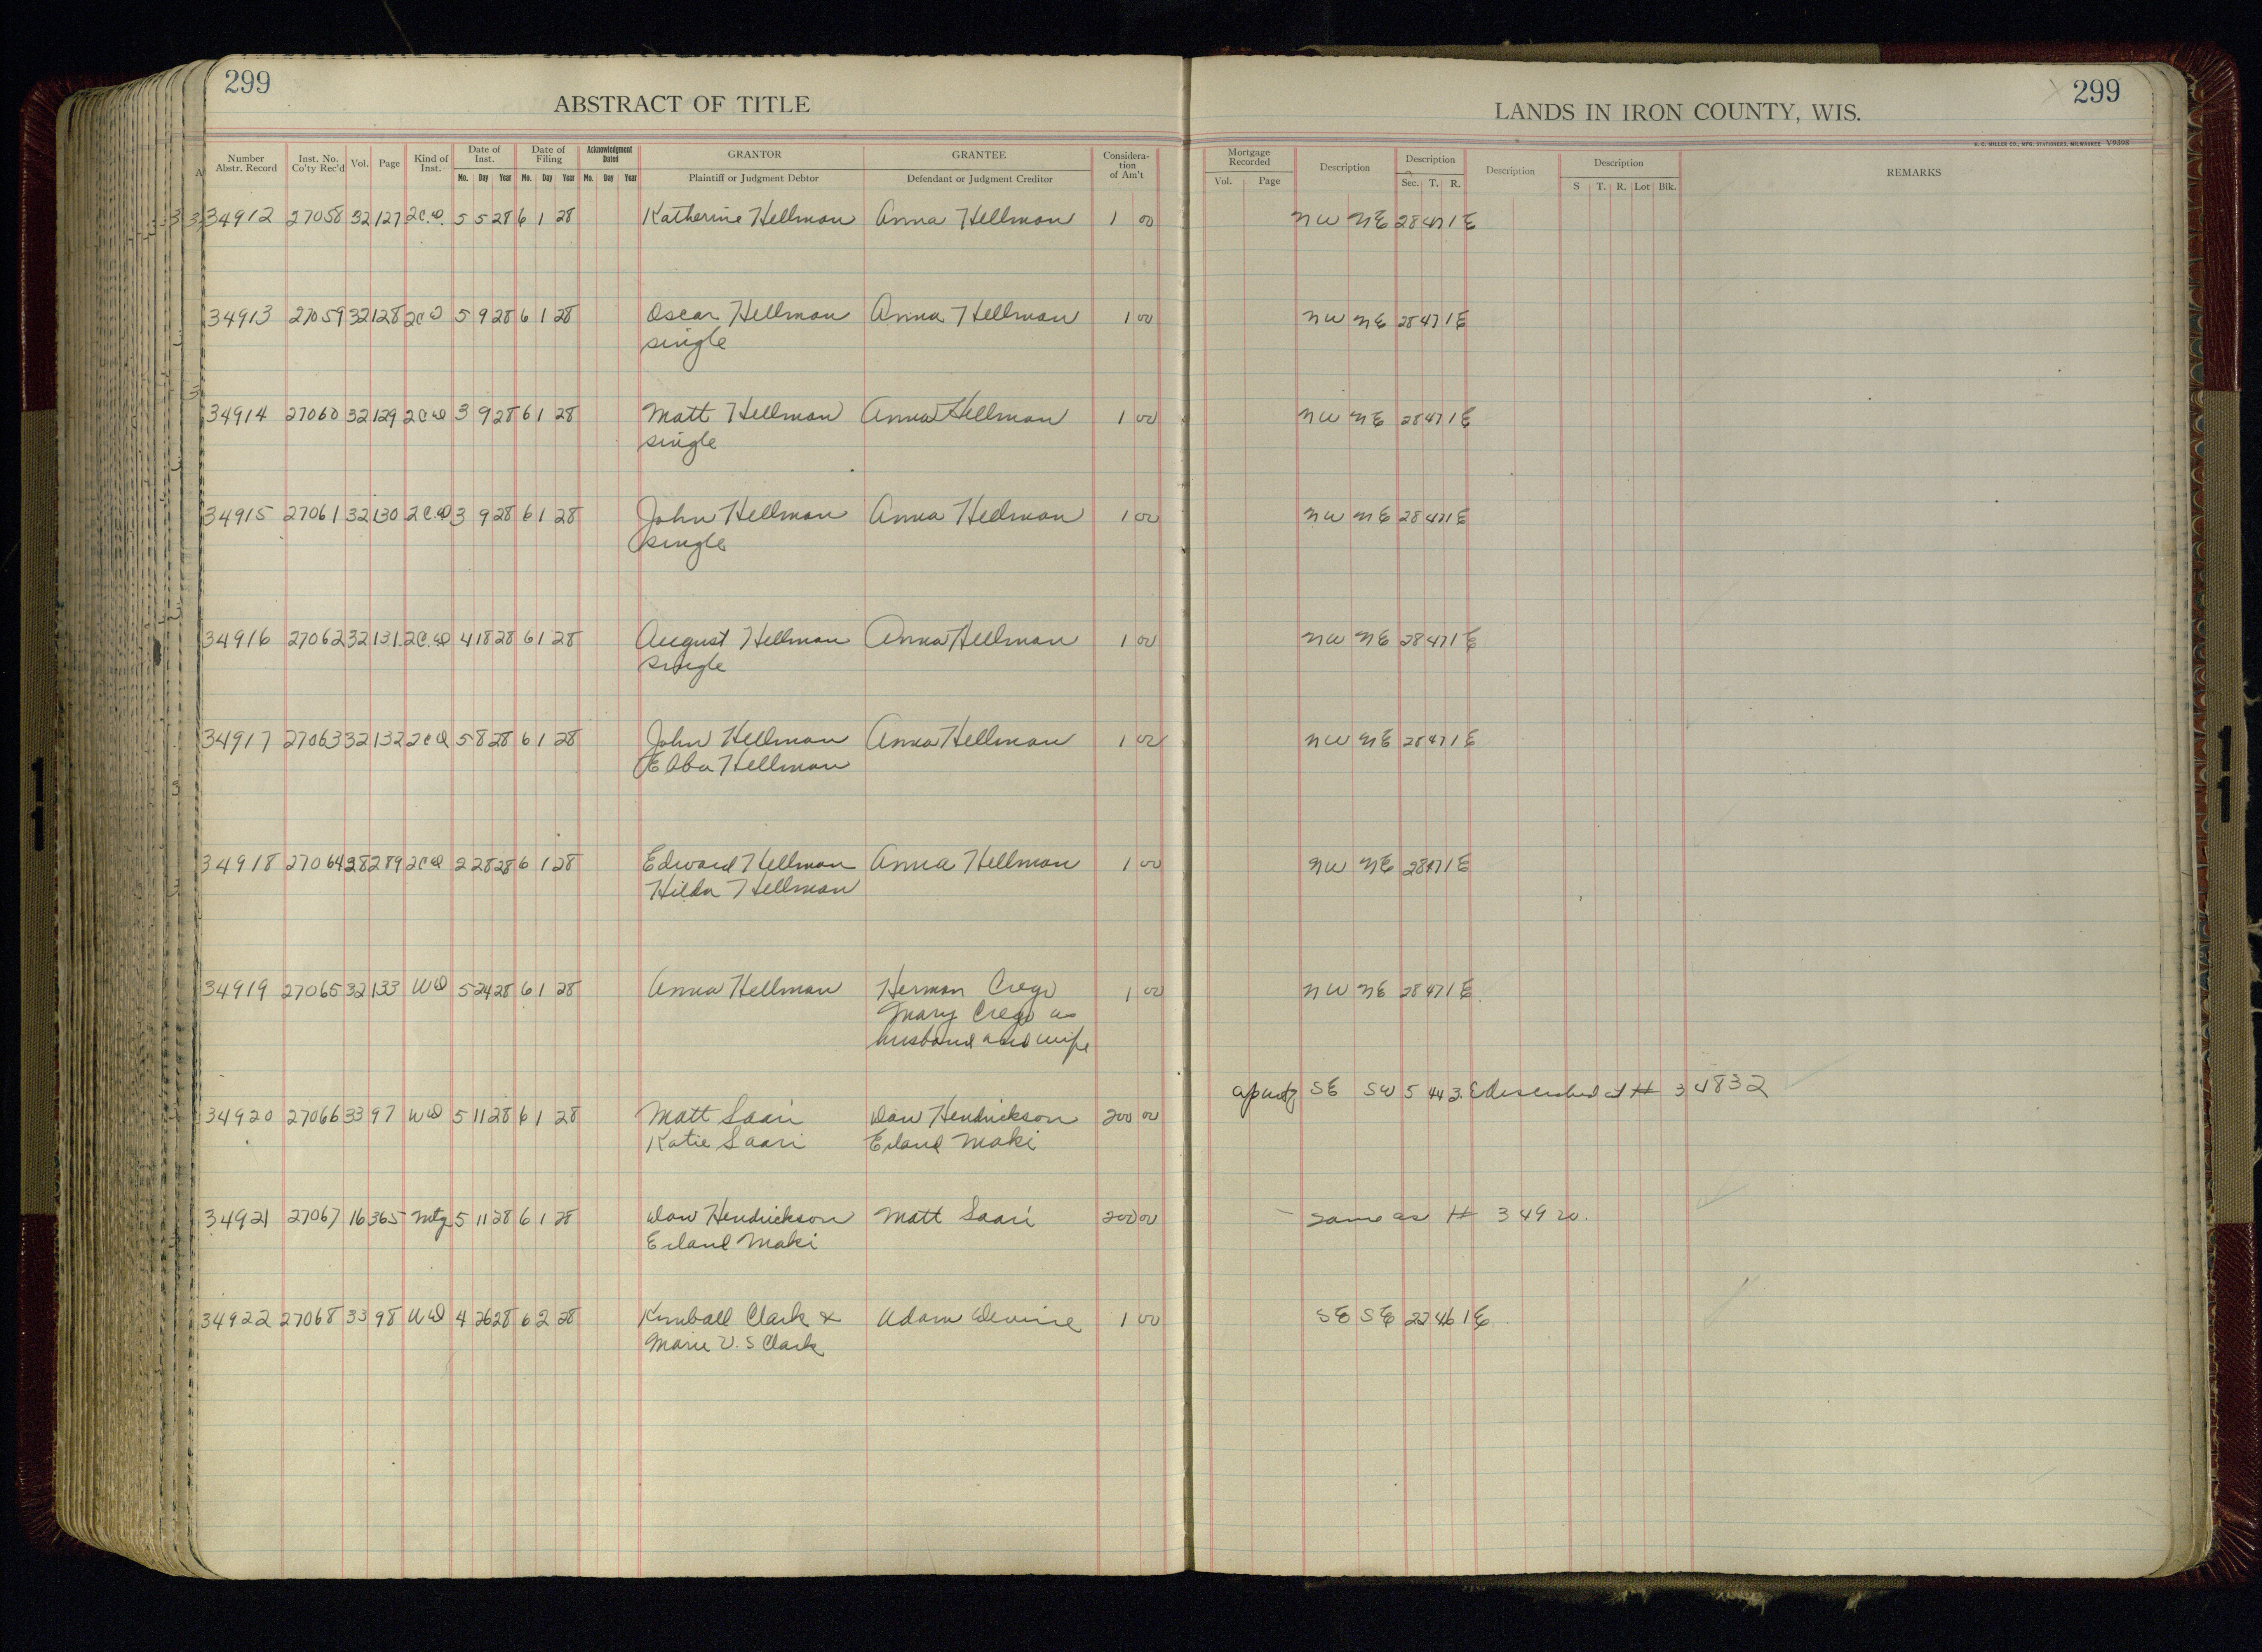 299
ABSTRACT OF TITLE
LANDS IN IRON COUNTY, WIS.
299
H. C. MILLER CO., MFG. STATIONERS, MILWAUKEE Y9398
Number Abstr. Record Inst. No. Co'ty Rec'd Vol. Page Kind of Inst. Date of Inst. Mo. Day Year Date of Filing Mo. Day Year Acknowledgment Dated Mo. Day Year GRANTOR Plaintiff or Judgment Debtor GRANTEE Defendant or Judgment Creditor Consideration of Am't Mortgage Recorded Vol. Page Description Description Sec. T. R. Description Description S T. R. Lot Blk. REMARKS
34912 27058 32 127 2C.D. 5 5 28 6 1 28 Katherine Hellman Anna Hellman 1 00 NW NE 28 47 1E
34913 27059 32 128 2CD 5 9 28 6 1 28 Oscar Hellman Anna Hellman 1 00 NW NE 28 47 1E
single
34914 27060 32 129 2CD 3 9 28 6 1 28 Matt Hellman Anna Hellman 1 00 NW NE 28 47 1E
single
34915 27061 32 130 2C.D 3 9 28 6 1 28 John Hellman Anna Hellman 1 00 NW NE 28 47 1E
single
34916 27062 32 131 2C.D 4 18 28 6 1 28 August Hellman Anna Hellman 1 00 NW NE 28 47 1E
single
34917 27063 32 132 2CD 5 8 28 6 1 28 John Hellman Anna Hellman 1 00 NW NE 28 47 1E
Ebba Hellman
34918 27064 28 289 2CD 2 28 28 6 1 28 Edward Hellman Anna Hellman 1 00 NW NE 28 47 1E
Hilda Hellman
34919 27065 32 133 WD 5 24 28 6 1 28 Anna Hellman Herman Crego 1 00 NW NE 28 47 1E
Mary Crego as
husband and wife
SE SW 5 44 3E described at # 34832
34920 27066 33 97 WD 5 11 28 6 1 28 Matt Saari Dan Hendrickson 200 00
Katie Saari Erland Maki
34921 27067 16 365 Mtg 5 11 28 6 1 28 Dan Hendrickson Matt Saari 200 00 same as # 34920.
Erland Maki
34922 27068 33 98 WD 4 26 28 6 2 28 Kimball Clark & Adam Devine 1 00 SE SE 22 46 1E
Marie V. S Clark